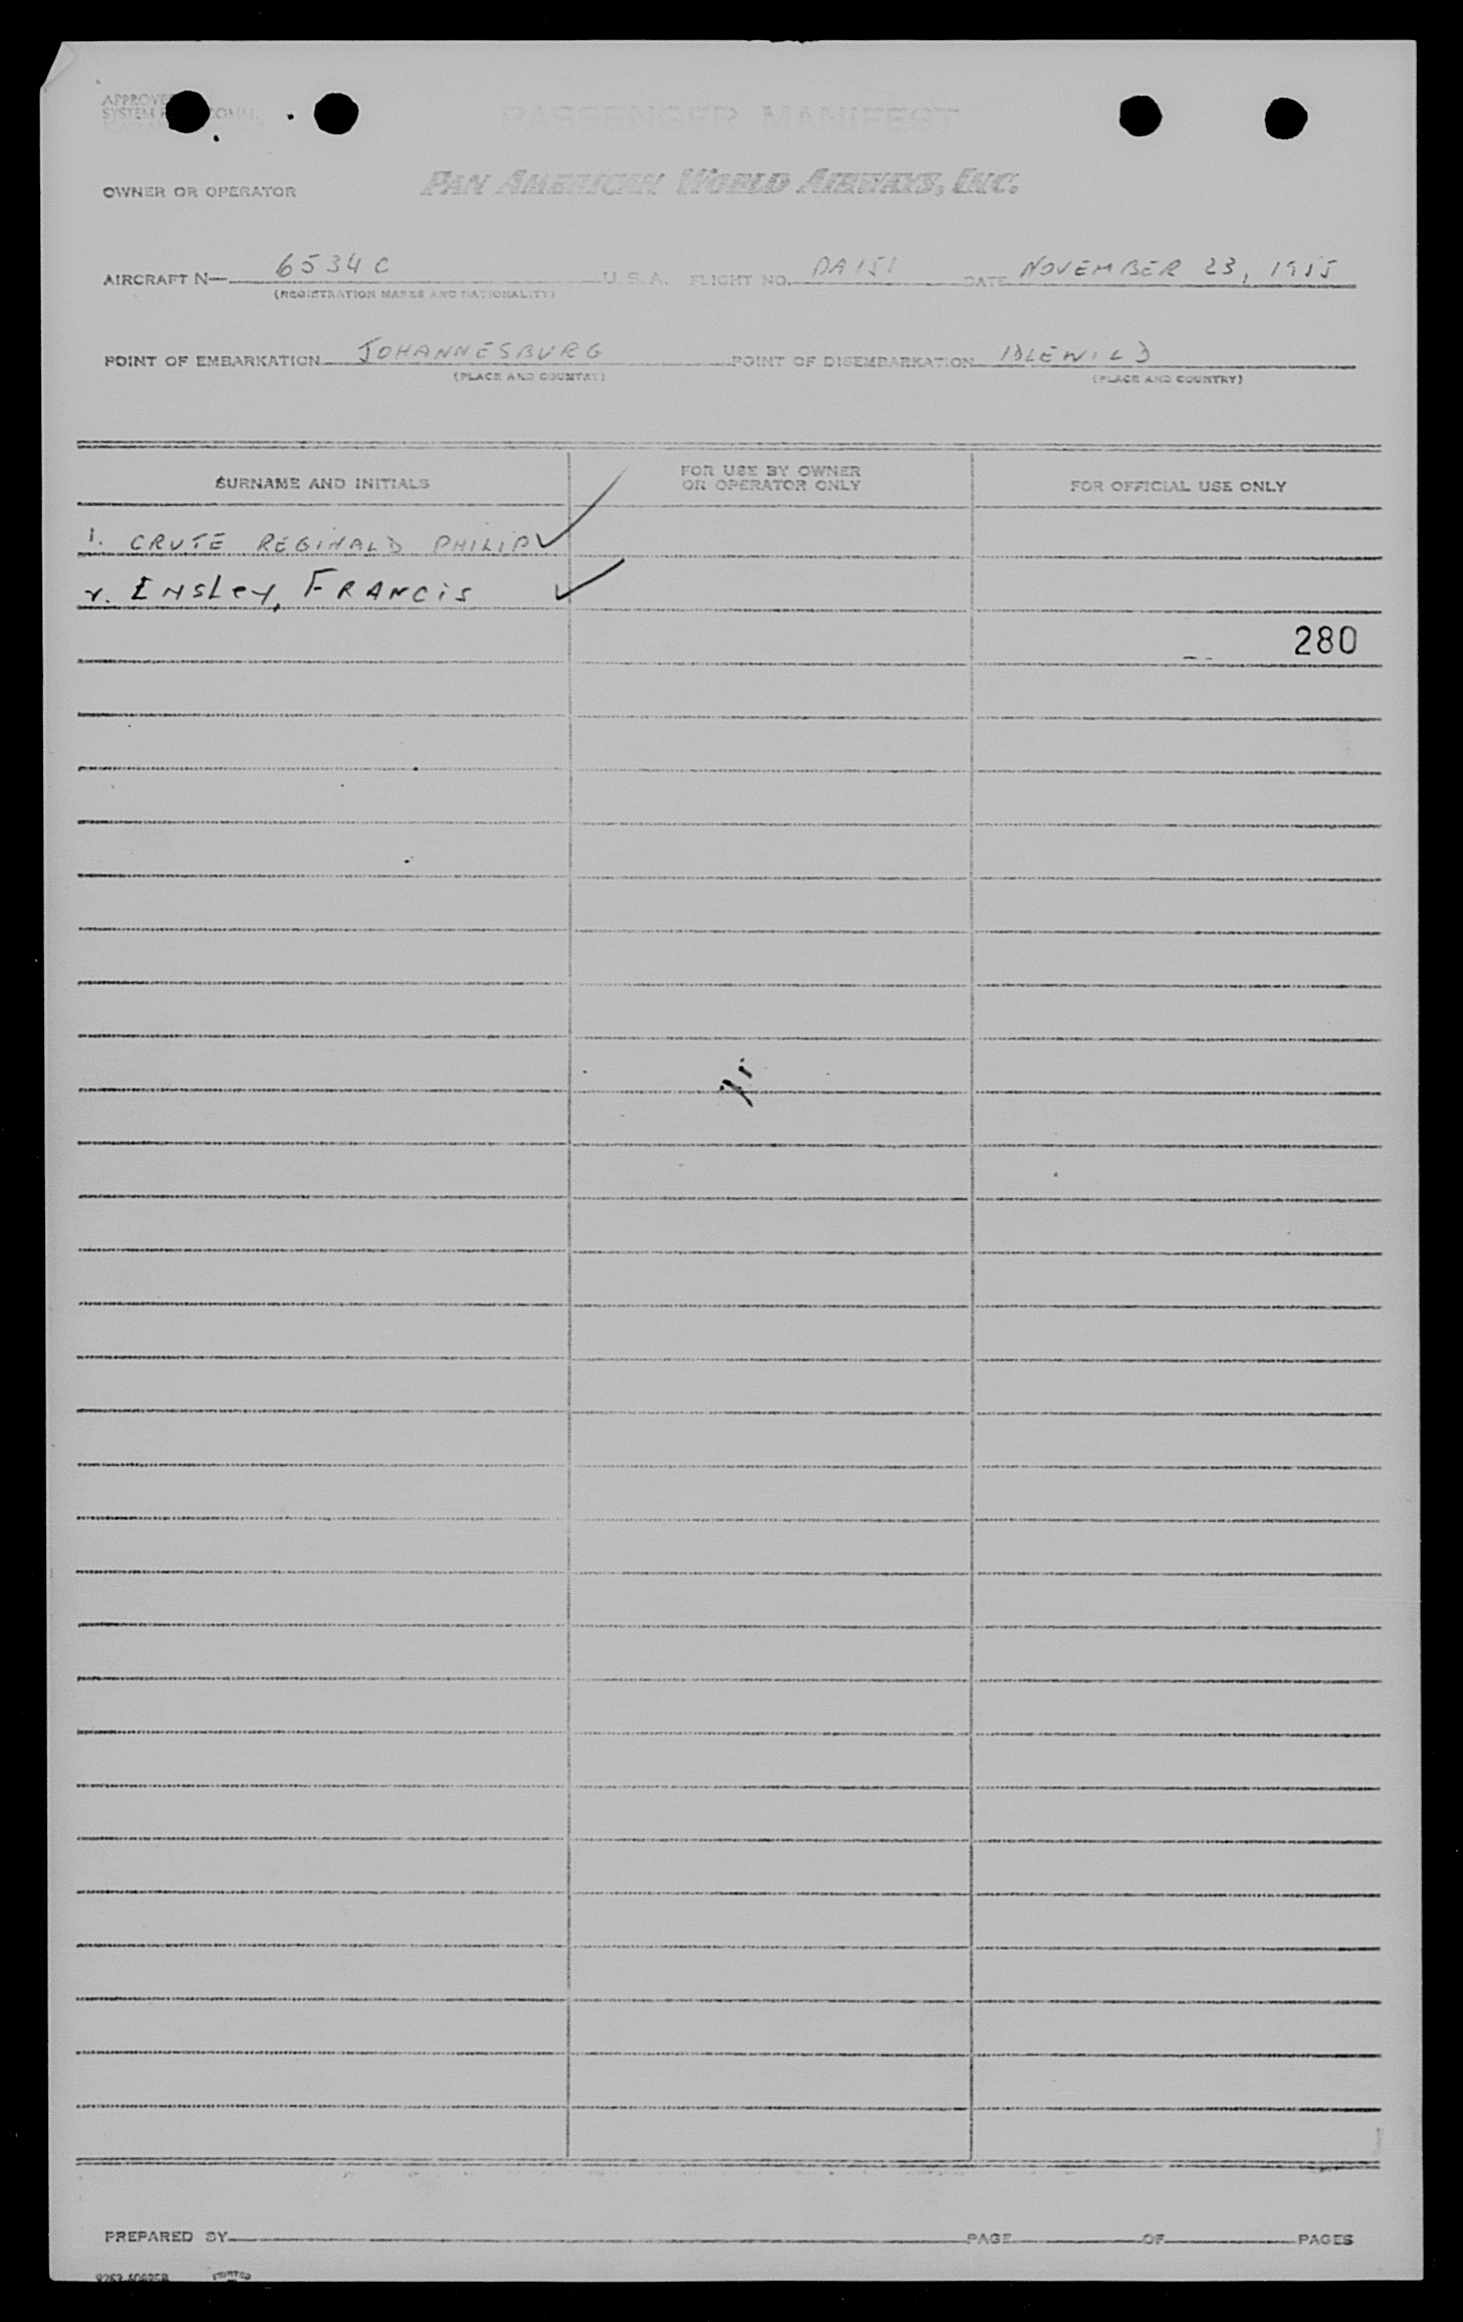 PASSENGER MANIFEST
OWNER OR OPERATOR PAN AMERICAN WORLD AIRWAYS, INC.
AIRCRAFT N— 6534C U.S.A. FLIGHT NO. PA151 DATE NOVEMBER 23, 1955
(REGISTRATION MARKS AND NATIONALITY)
POINT OF EMBARKATION JOHANNESBURG POINT OF DISEMBARKATION IDLEWILD
(PLACE AND COUNTRY) (PLACE AND COUNTRY)
SURNAME AND INITIALS FOR USE BY OWNER OR OPERATOR ONLY FOR OFFICIAL USE ONLY
1. CRUTE REGINALD PHILIP ✓
2. Ensley, FRANCIS ✓
280
PREPARED BY PAGE OF PAGES